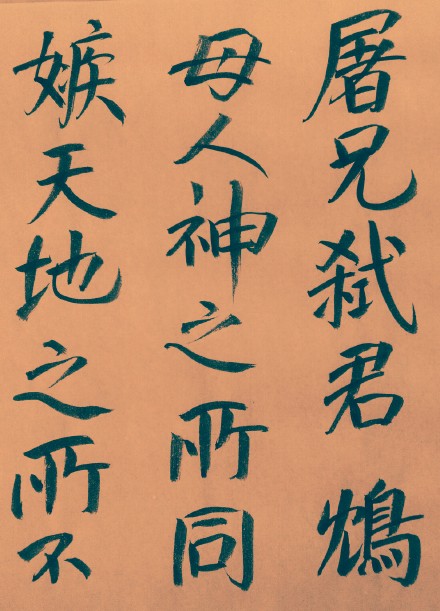 屠兄弒君鴆
母人神之所同
嫉天地之所不